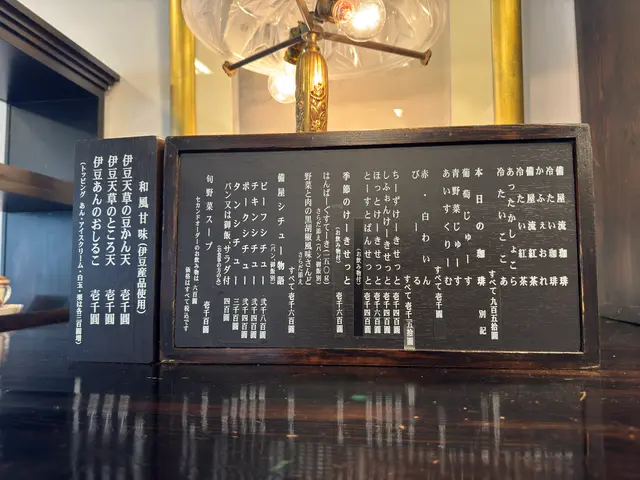 備屋流珈琲
冷たい珈琲
かふぇおれ
備屋流紅茶
冷たい紅茶
あったかしょこら
冷たいここあ
すべて九百五拾圓
本日の珈琲 別記
葡萄じゅーす
青野菜じゅーす
あいすくりーむ
すべて壱千圓
赤・白わいん
びーる
すべて壱千五拾圓
ちーずけーきせっと 壱千四百圓
しふぉんけーきせっと 壱千四百圓
ほっとけーきせっと 壱千四百圓
とーすとぱんせっと 壱千四百圓
(お飲み物付)
季節のけーきせっと 壱千六百圓
(お飲み物付)
はんばーぐすてーき(二五〇g)
さらだ添え(パン、御飯別)
野菜と肉の黒胡椒風味さんど さらだ添え
すべて壱千六百圓
備屋シチュー物語(パン、御飯別)
ビーフシチュー 弐千八百圓
チキンシチュー 弐千四百圓
ポークシチュー 弐千四百圓
タンシチュー 三千百圓
パン又は御飯、サラダ付 四百圓
(お食事の方のみ)
旬野菜スープ 壱千百圓
セカンドオーダーのお飲み物 六百圓
価格はすべて税込です
和風甘味(伊豆産品使用)
伊豆天草の豆かん天 壱千圓
伊豆天草のところ天 壱千圓
伊豆あんのおしるこ 壱千圓
(トッピング あん・アイスクリーム・白玉・栗は各三百圓増)